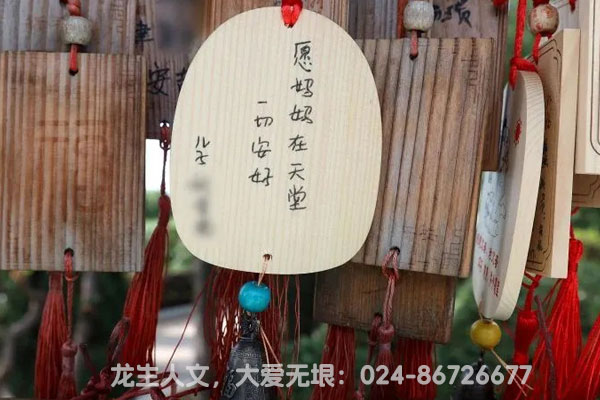 愿妈妈在天堂
一切安好
儿子
龙生人文，大爱无垠：024-86726677